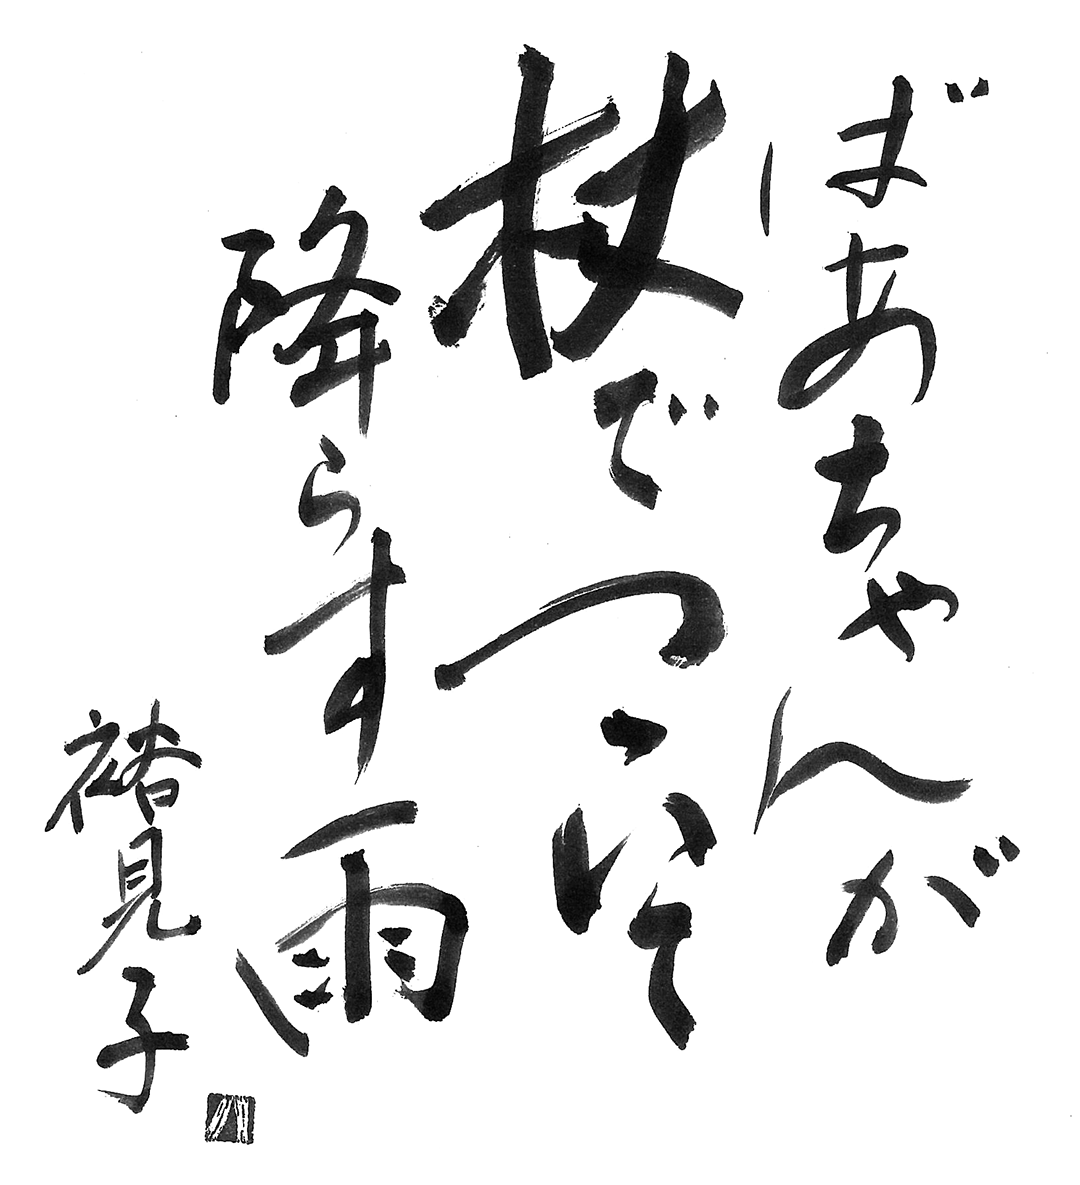 ばあちゃんが
杖でつゝいて
降らす雨
褚見子